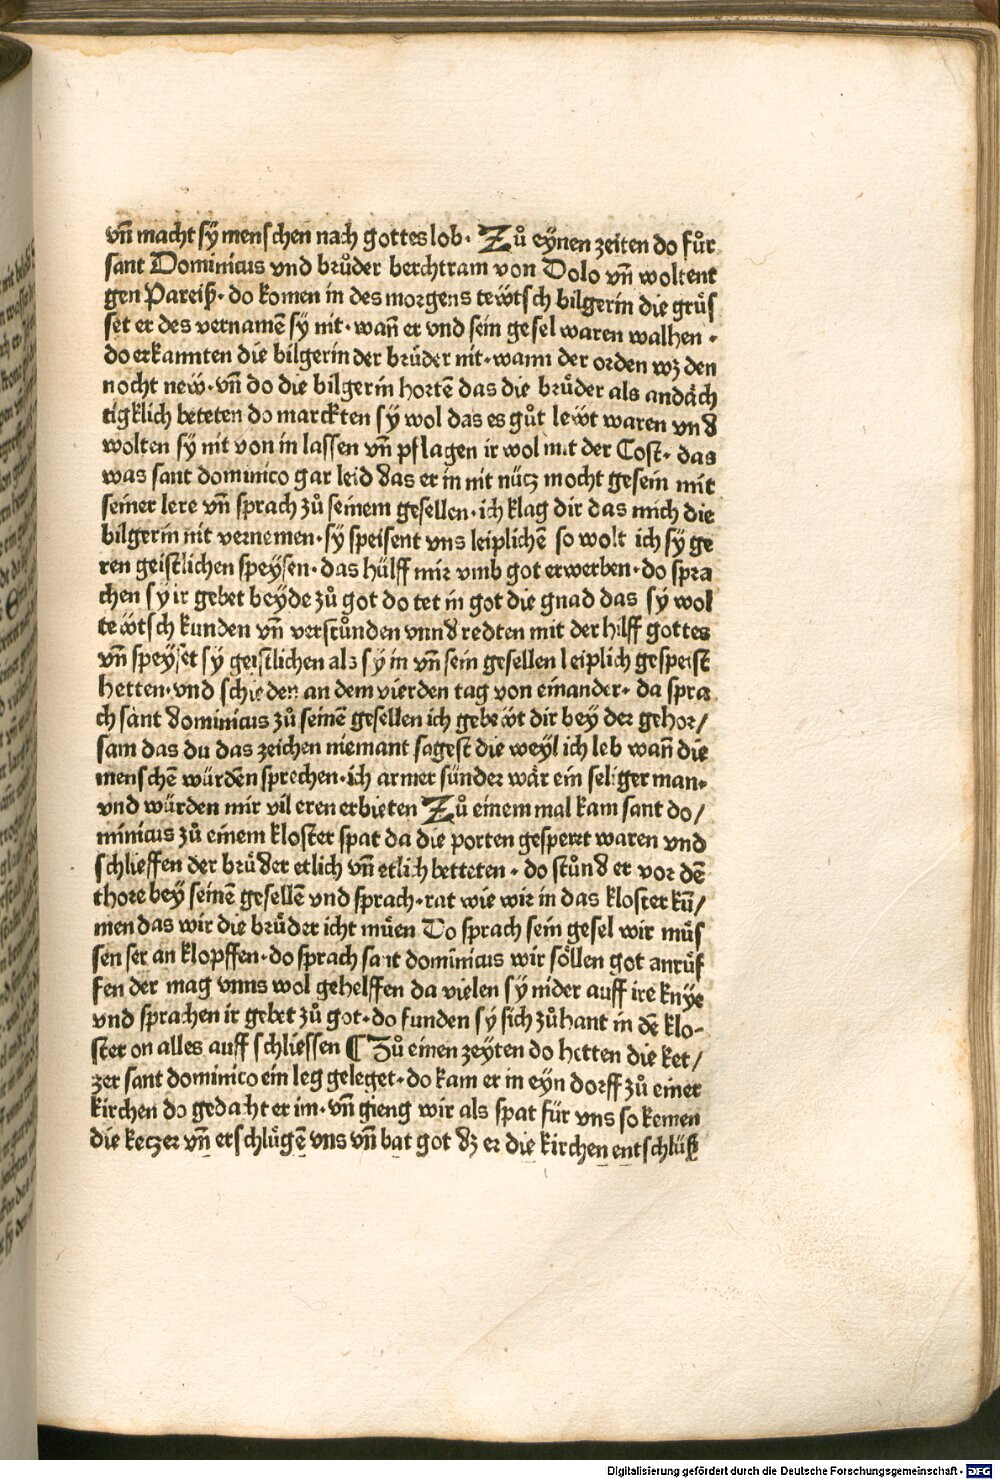 vñ macht sÿ menschen nach gottes lob · Zů eÿnen zeiten do fůr
sant Dominicus vnd brůder berchtram von Dolo vñ woltent
gen Pareiß · do komen in des morgens tewtsch bilgerin die grůs
set er des vernamē sÿ nit · wañ er vnd sein gesel waren walhen ·
do erkannten die bilgerin der brůder nit · wann der orden wz den
nocht new · vñ do die bilgerin hortē das die brůder als andåch
tigklich beteten do marckten sÿ wol das es gůt lewt waren vnd
wolten sÿ nit von in lassen vñ pflagen ir wol mit der Cost · das
was sant dominico gar leid das er in nit nücz mocht gesein mit
seiner lere vñ sprach zů seinem gesellen · ich klag dir das mich die
bilgerin nit vernemen · sÿ speisent vns leiplichē so wolt ich sÿ ge
ren geistlichen speÿsen · das hülff mir vmb got erwerben · do spra
chen sÿ ir gebet beÿde zů got do tet in got die gnad das sÿ wol
tewtsch kunden vñ verstůnden vnnd redten mit der hilff gottes
vñ speÿset sÿ geistlichen als sÿ in vñ sein gesellen leiplich gespeist
hetten · vnd schieden an dem vierden tag von einander · da spra
ch sant dominicus zů seinē gesellen ich gebewt dir beÿ der gehor/
sam das du das zeichen niemant sagest die weÿl ich leb wañ die
menschē würden sprechen · ich armer sünder wår ein seliger man ·
vnd würden mir vil eren erbieten Zů einem mal kam sant do/
minicus zů einem kloster spat da die porten gesperrt waren vnd
schlieffen der brůder etlich vñ etlich betteten · do stůnd er vor dē
thore beÿ seinē gesellē vnd sprach · rat wie wir in das kloster kū/
men das wir die brůder icht můen Do sprach sein gesel wir můs
sen ser an klopffen · do sprach sant dominicus wir söllen got anrůf
fen der mag vnns wol gehelffen da vielen sÿ nider auff ire knÿe
vnd sprachen ir gebet zů got · do funden sÿ sich zůhant in dē klo-
ster on alles auff schliessen ¶ Zů einen zeÿten do hetten die ket/
zer sant dominico ein leg geleget · do kam er in eÿn dorff zů einer
kirchen do gedacht er im · vñ gieng wir als spat für vns so kemen
die keczer vñ erschlůgē vns vñ bat got dz er die kirchen entschlüß
Digitalisierung gefördert durch die Deutsche Forschungsgemeinschaft - DFG